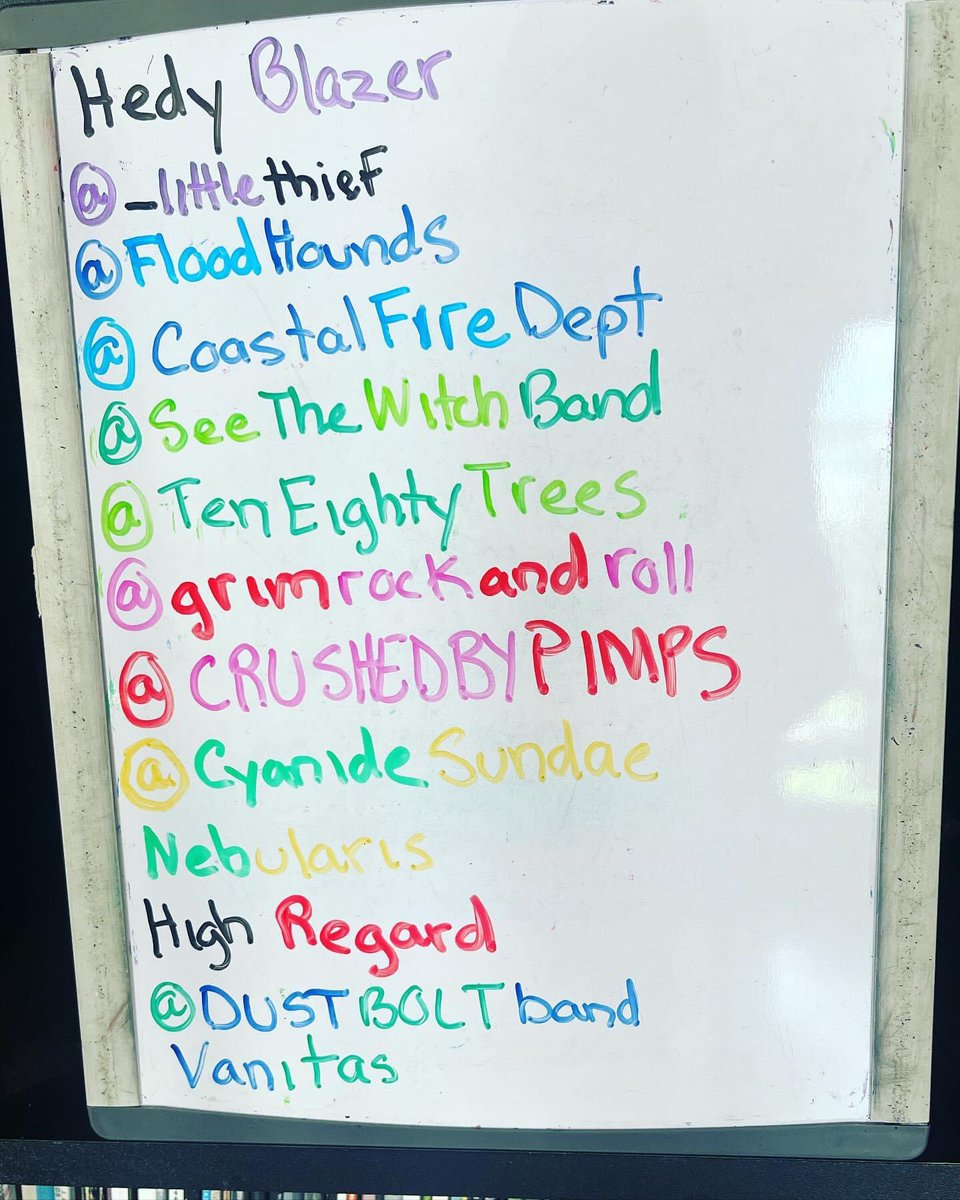 Hedy Blazer
@_littlethief
@FloodHounds
@CoastalFireDept
@SeeTheWitchBand
@TenEightyTrees
@grimrockandroll
@CRUSHEDBYPIMPS
@CyanideSundae
Nebularis
High Regard
@DUSTBOLTband
Vanitas